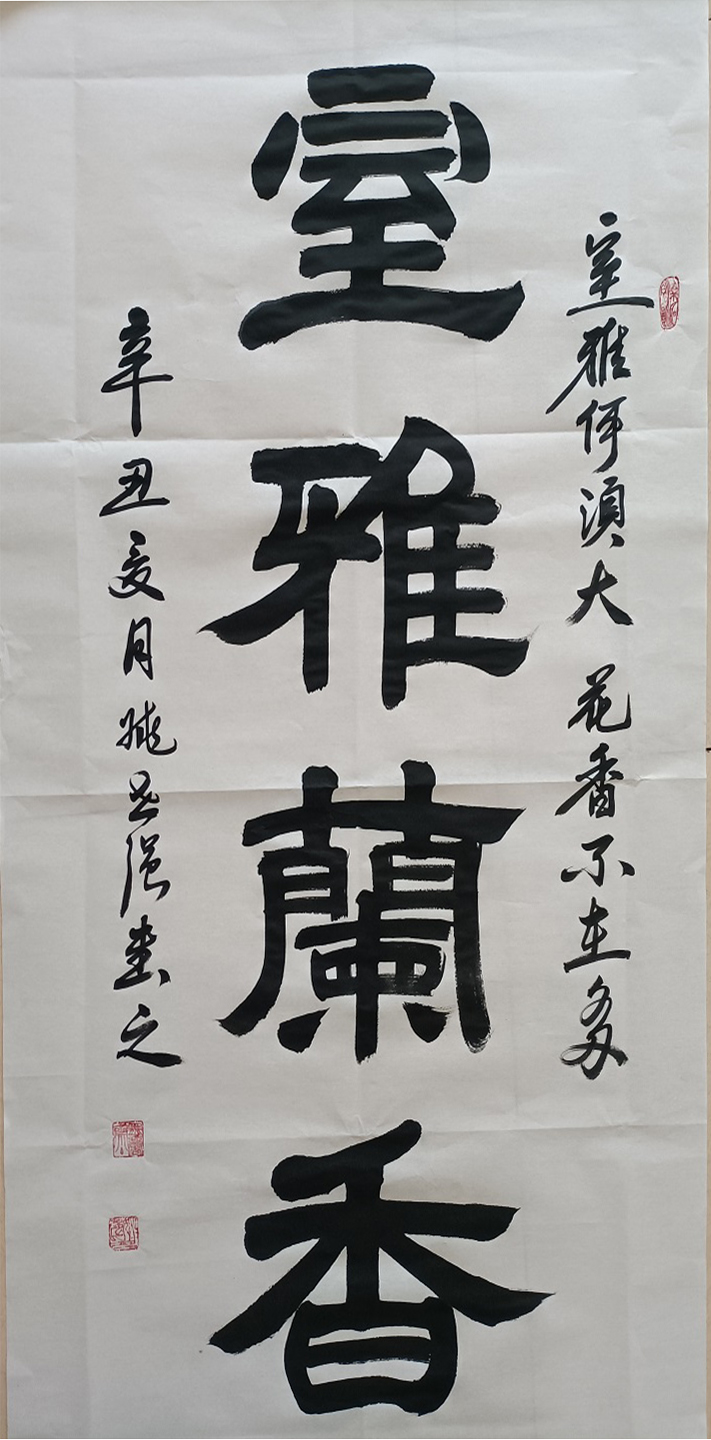 室雅何須大 花香不在多
室雅蘭香
辛丑夏月 書之